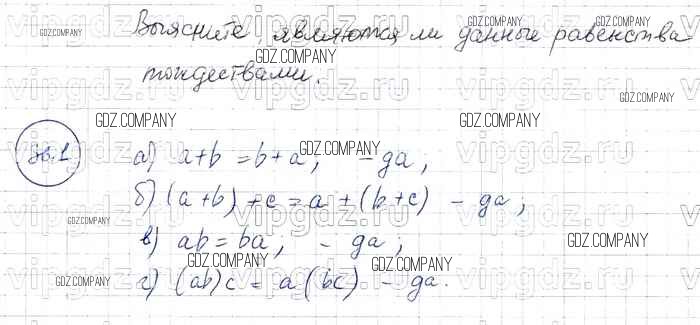 Выясните, являются ли данные равенства
тождествами.
а) a+b = b+a, - да,
б) (a+b)+c = a+(b+c) - да,
в) ab = ba, - да,
г) (ab)c = a(bc) - да.
GDZ.COMPANY
vipgdz.ru